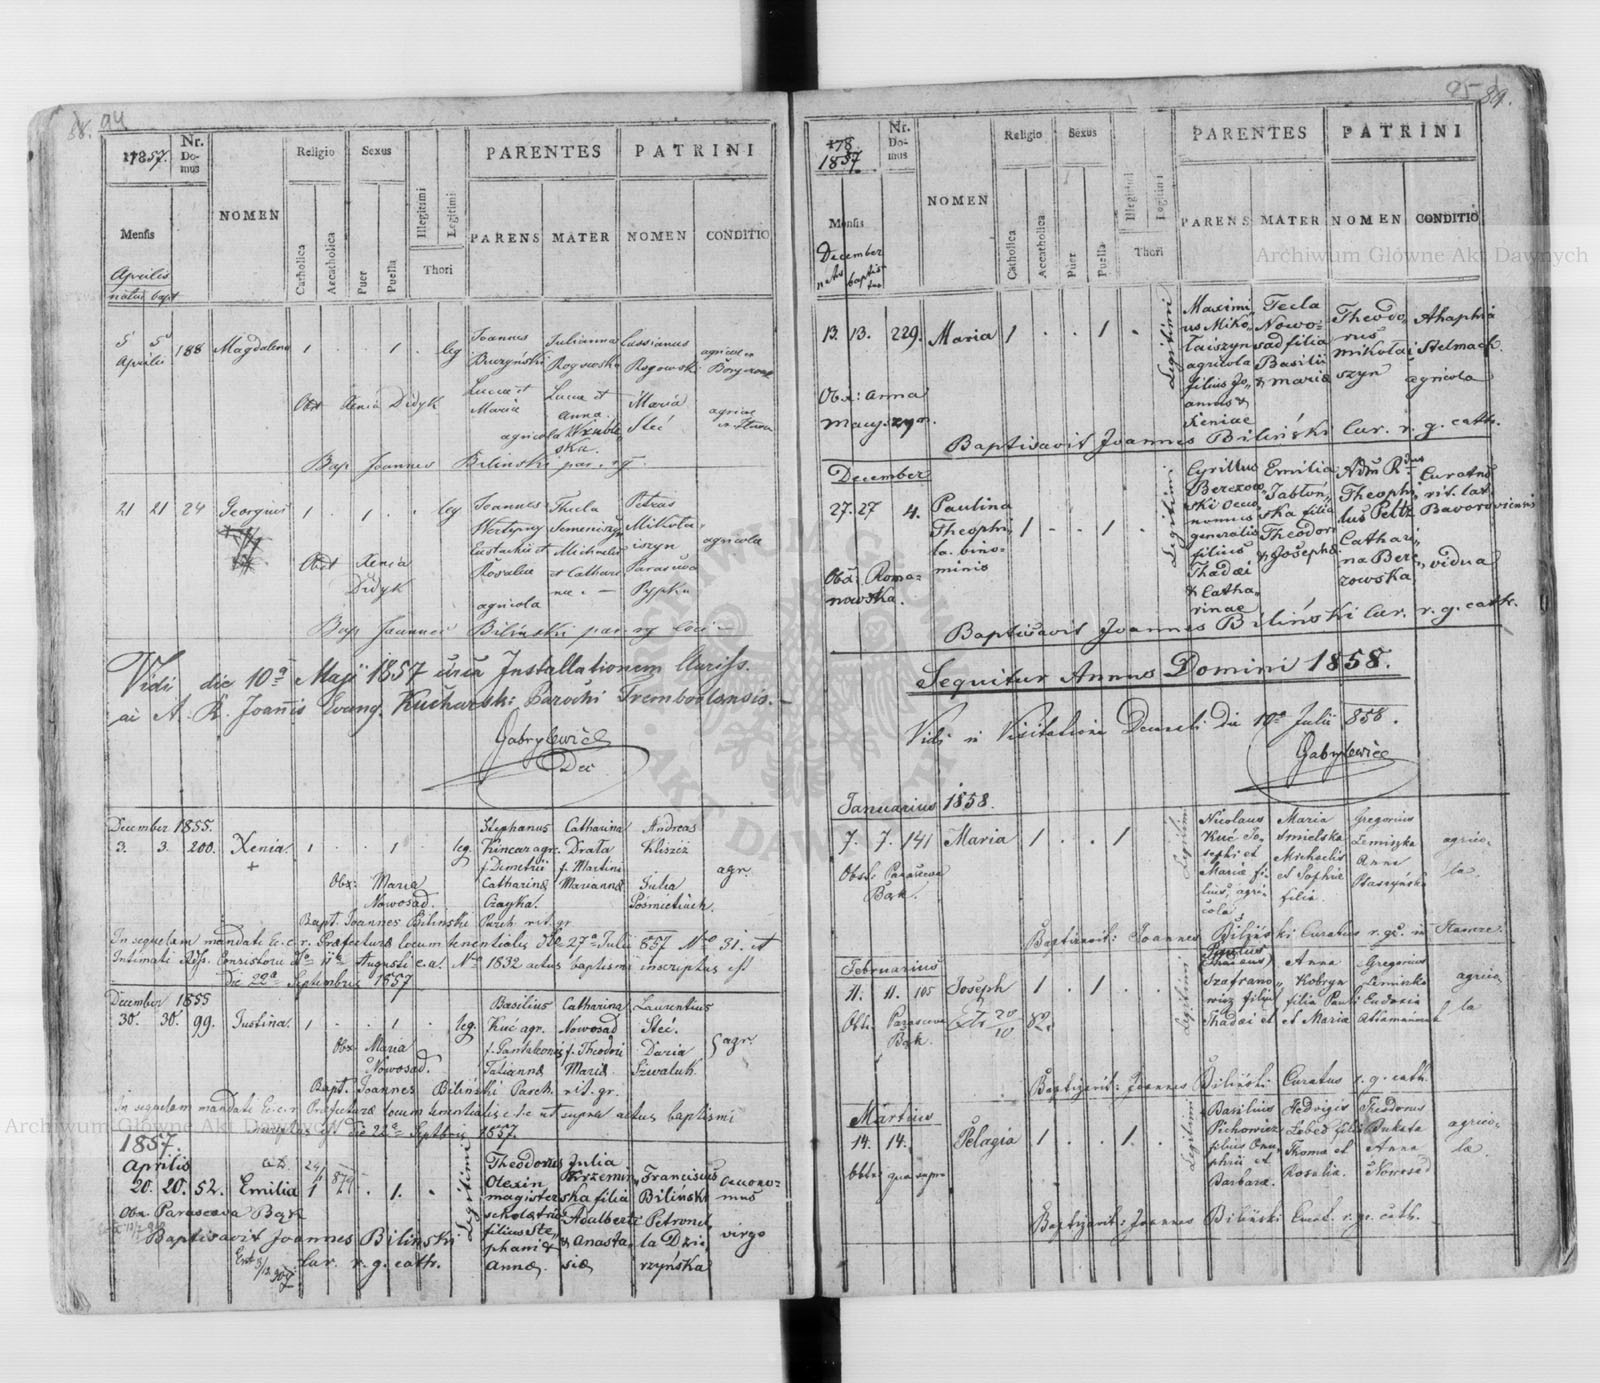 94
1857.
Nr. Domus
NOMEN
Religio
Sexus
PARENTES
PATRINI
Mensis
Catholica
Accatholica
Puer
Puella
Illegitimi
Legitimi
Thori
PARENS
MATER
NOMEN
CONDITIO
Aprilis
natus bapt
5 5 Aprilis 188 Magdalena 1 . . 1 . leg
Joannes Buczyński Lucae et Maria agricola
Julianna Rogowska Lucae et Anna
Cassianus Rogowski
Maria Stec
Obst Xenia Didyk
Bap Joannes Bilinski par. rg
21 21 24 Georgius 1 . 1 . . leg
Joannes Wertypny Eustachii et Rosaliae agricola
Thecla Semeniszyn Michaelis et Catharinae
Petrus Mikołaiszyn
Parascewa Pypka
agricola
Obst Xenia Didyk
Bap Joannes Biliński par. rg loci
Vidi die 10a Maji 1857 circa Installationem
A. R. Joannis Evang. Kucharski Parochi Trembowlensis.
Gabrylewicz
Dec
December 1855.
3. 3. 200. Xenia 1 . . 1 . leg.
Stephanus Kincar agr. f. Dimetrii Catharinae Czayka.
Catharina Drata f. Martini Mariannae
Andreas Kliszcz
Julia Pośmietiuch.
agr.
Obx: Maria Nowosad.
Bapt. Joannes Bilinski Parch. rit. gr.
In sequelam mandati Ec. c. r. Praefecturae locum tenentialis ddo 27a Julii 857 Nro 31. et
Intimati Consistorii ddo 11a Augusti c. a. Nro 1832 actus baptismi inscriptus est
Die 22a Septembris 1857
December 1855
30. 30. 99. Justina. 1 . . 1 . leg.
Basilius Kuć agr. f. Pantaleonis Tatianna
Catharina Nowosad f. Theodori Maria
Laurentius Stec.
Daria Szwaluk.
agr.
Obx. Maria Nowosad.
Bapt. Joannes Biliński Parch. rit. gr.
In sequelam mandati Ec. c. r. Praefecturae locum tenentialis ut supra actus baptismi
inscriptus est die 22a Septbris 1857.
1857.
Aprilis
20. 20. 52. Emilia 1 . 1. .
Legitimi
Theodorus Olexin magister scholae filius Stephani & Annae
Julia Krzemińska filia Adalberti & Anastasiae
Franciscus Biliński
Petronella Dzierzyńska
oeconomus
virgo
Obx. Parascewa Bąk
Baptisavit Joannes Bilinski
Cur. r. g. cath.
95
89.
178
1857
Nr. Domus
NOMEN
Religio
Sexus
PARENTES
PATRINI
Mensis
Catholica
Accatholica
Puer
Puella
Illegitimi
Legitimi
Thori
PARENS
MATER
NOMEN
CONDITIO
December
natus baptisatus
13. 13. 229. Maria 1 . . 1 .
Legitimi
Maximius Mikołaiszyn agricola filius Joannis & Xeniae
Tecla Nowosad filia Basilii & Mariae
Theodorus Mikołaiszyn
Ahaphia Stelmach
agricola
Obx: Anna
Baptisavit Joannes Biliński Cur. r. g. cath.
December
27. 27 4. Paulina Theophila binominis 1 . . 1 .
Legitimi
Cyrillus Berezowski Oeconomus generalis filius Thadaei & Catharinae
Emilia Jabłońska filia Theodori & Josepha
Adm Rdus Theophilus Peltz
Catharina Berezowska
Curatus rit. lat. Bavorovicensis
vidua
Obx: Romanowska.
Baptisavit Joannes Biliński Cur. r. g. cath.
Sequitur Annus Domini 1858.
Vidi in Visitatione Decanali die 10a Julii 858.
Gabrylewicz
Januarius 1858.
7. 7. 141 Maria 1 . . 1
Legitimi
Nicolaus Kuć Josephi et Mariae filius, agricola
Maria Smielska Michaelis et Sophiae filia
Gregorius Lemiszka
Anna Ptaszyńska
agricola
Obst: Parascewa Bąk.
Baptizavit: Joannes Biliński Curatus r. gc.
Februarius
11. 11. 105 Joseph 1 . 1 . .
Legitimi
Szafranowicz filius Thadaei et
Anna Kobryn filia Pauli et Maria
Gregorius Lemiszka
Eudoxia
agricola
Obst. Parascewa Bąk.
Baptizavit: Joannes Biliński Curatus r. g. cath.
Martius
14. 14. Pelagia 1 . . 1. .
Legitimi
Basilius Pichowicz filius Onuphrii et Barbarae.
Hedvigis Lebed filia Thomae et Rosalia.
Theodorus Bukata
Anna Nowosad
agricola.
Obst: qua supra
Baptizavit: Joannes Biliński Curat. r. gr. cath.
Archiwum Główne Akt Dawnych
Archiwum Główne Akt Dawnych
ARCHIWUM GŁÓWNE AKT DAWNYCH